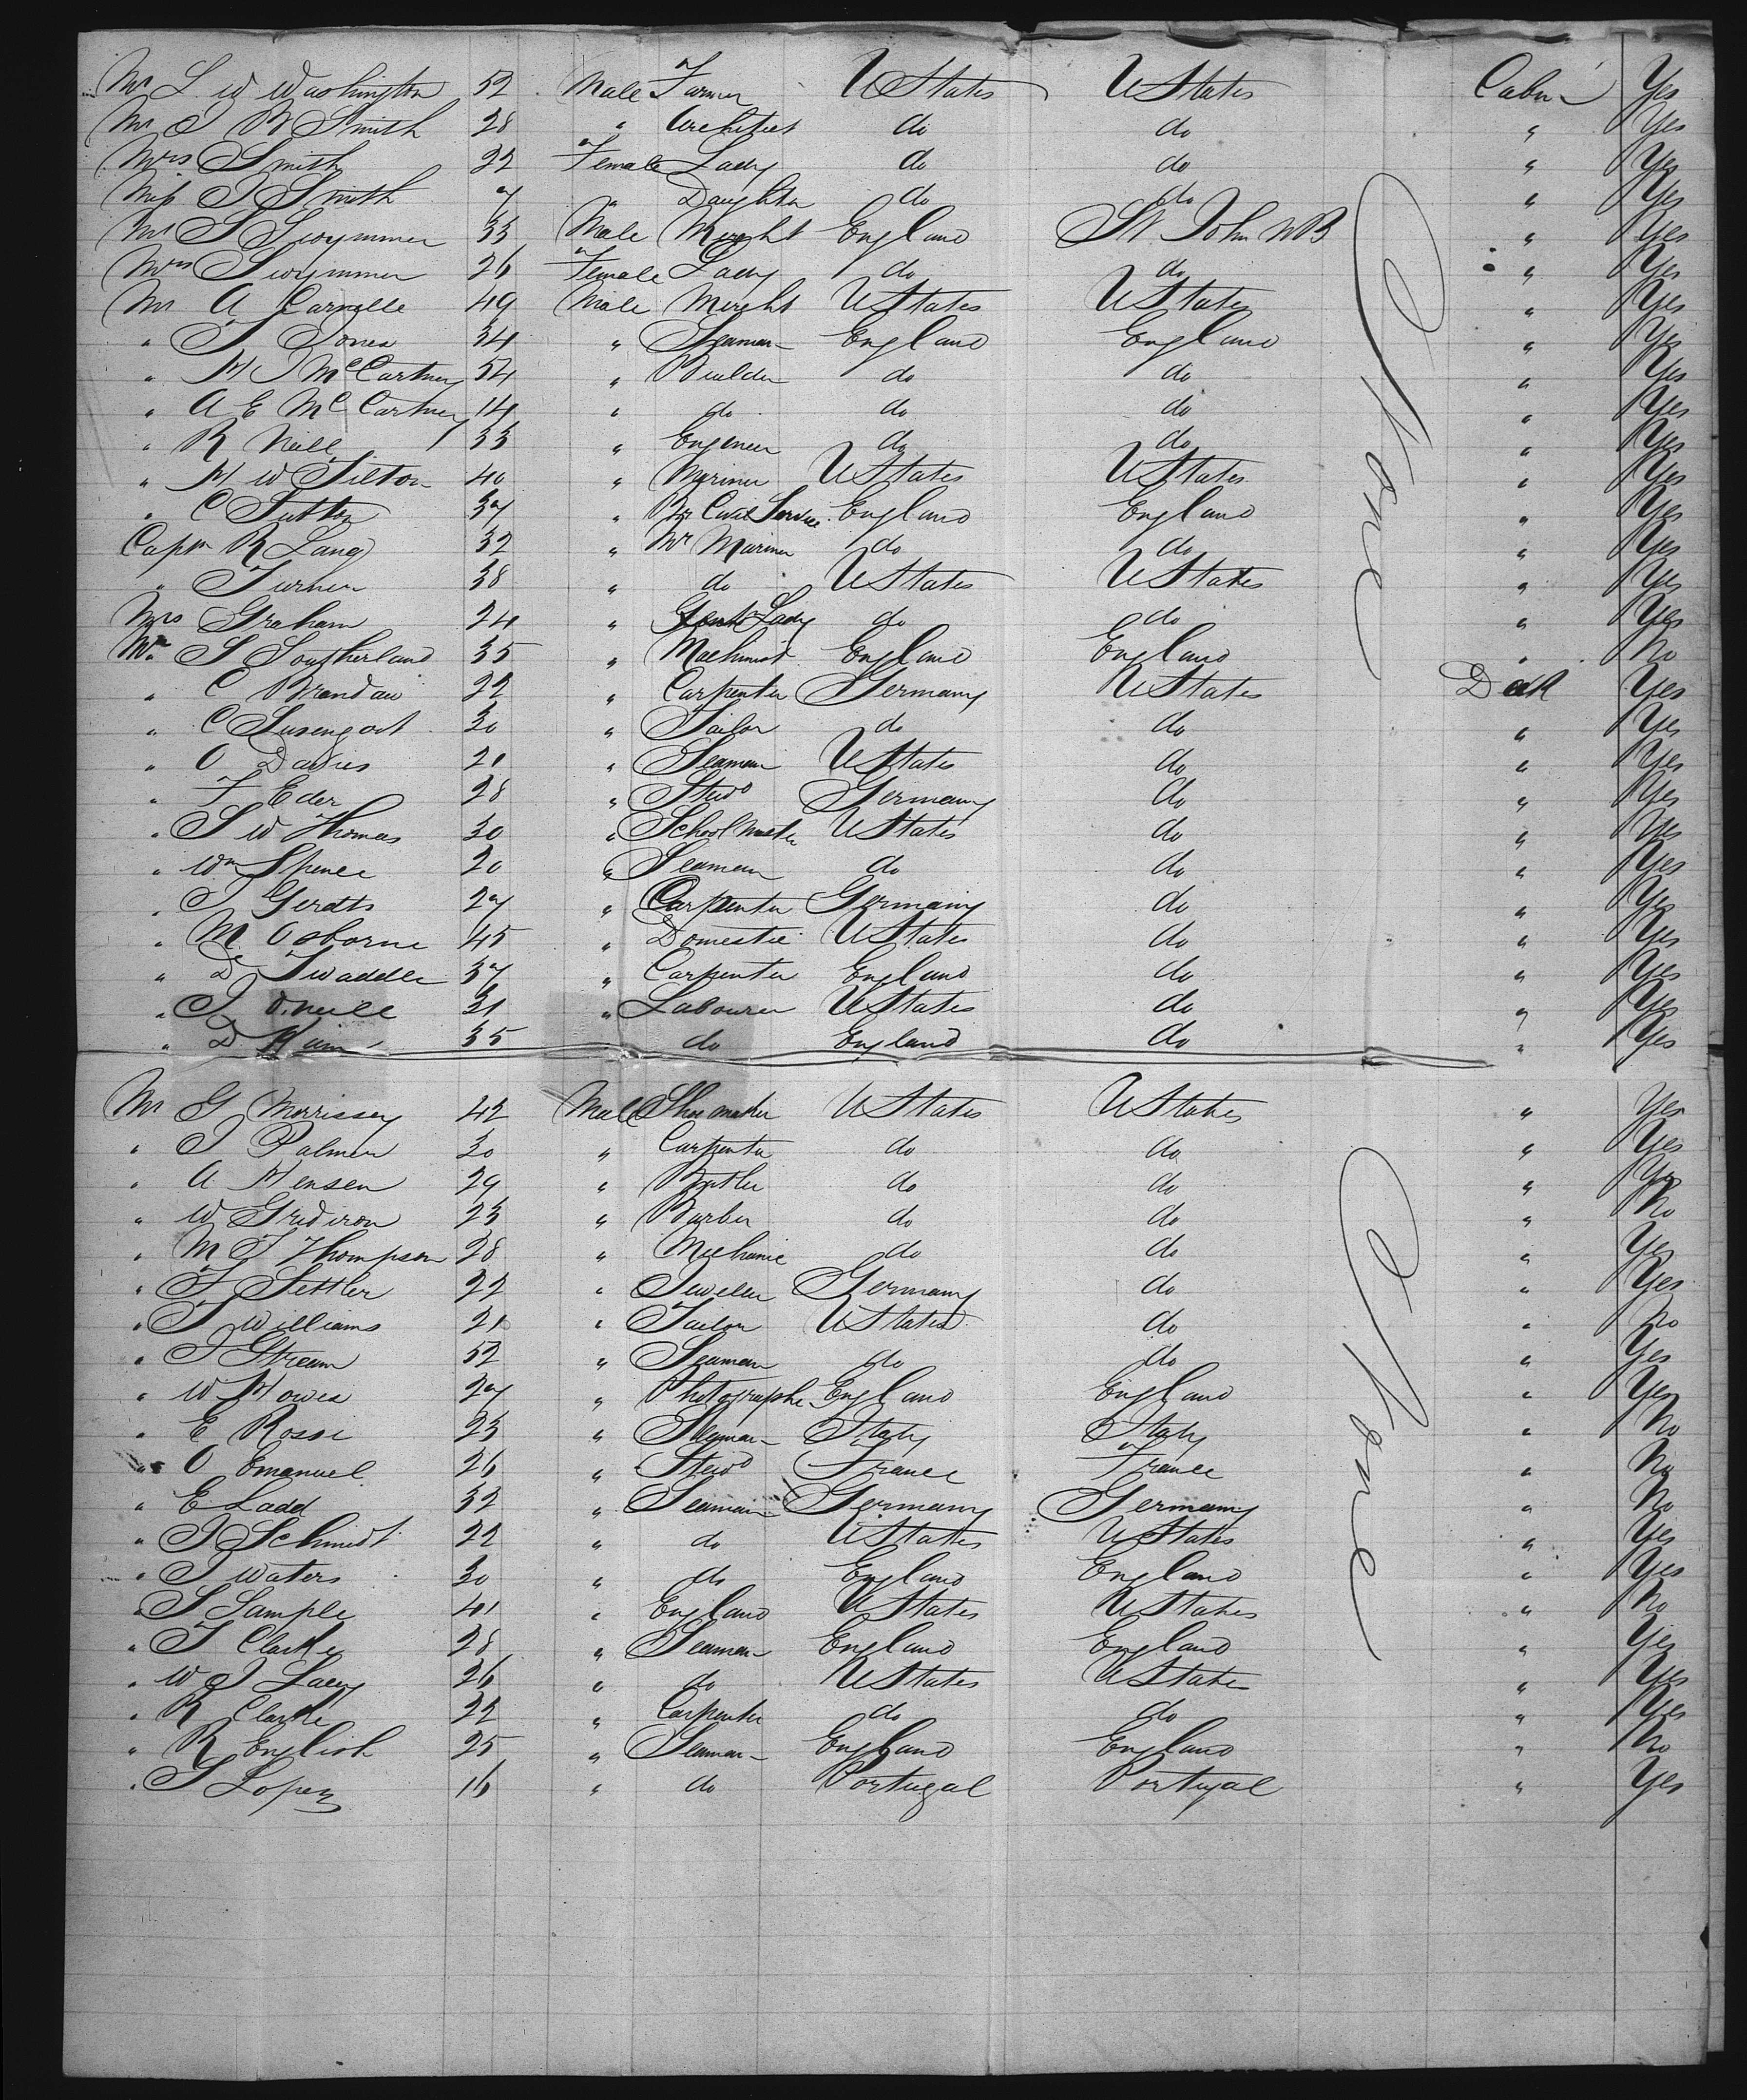 Mr L. W Washington 52 Male Farmer UStates UStates Cabin Yes
Mr J B Smith 28 " Architect do do " Yes
Mrs Smith 22 Female Lady do do " Yes
Miss J Smith 7 " Daughter do do " Yes
Mr S Swymmer 33 Male Mercht England St. John NB " Yes
Mrs Swymmer 26 Female Lady do do " Yes
Mr A 49 Male Mercht UStates UStates " Yes
" J Jones 34 " Seaman England England " Yes
" H J McCartney 54 " Builder do do " Yes
" A E McCartney 14 " do do do " Yes
" R 33 " Engineer do do " Yes
" H W Tilton 40 " Mariner UStates UStates " Yes
" C Sutton 37 " Br Civil Service England England " Yes
Captn R Lang 32 " Mr Mariner do do " Yes
" Turner 38 " do UStates UStates " Yes
Mrs Graham 24 " Lady do do " Yes
Mr S Southerland 35 " Machinist England England " No
" C Brandau 22 " Carpenter Germany UStates Deck Yes
" C 30 " Tailor do do " Yes
" O Davies 21 " Seaman UStates do " Yes
" F Eder 28 " Stewd Germany do " Yes
" S W Thomas 30 " School Master UStates do " Yes
" Wm Spence 20 " Seaman do do " Yes
" J Gerdts 27 " Carpenter Germany do " Yes
" M Osborne 45 " Domestic UStates do " Yes
" D Twaddle 37 " Carpenter England do " Yes
" J O.neill 31 " Labourer UStates do " Yes
" D 35 do England do " Yes
Mr G Morrissey 42 Male Shoemaker UStates UStates " Yes
" J Palmer 30 " Carpenter do do " Yes
" A Hensen 29 " Butler do do " Yes
" W Gridiron 23 " Barber do do " No
" M J Thompson 28 " Mechanic do do " Yes
" F Settler 22 " Jeweler Germany do " Yes
" T Williams 21 " Tailor UStates do " No
" J Stream 52 " Seaman do do " Yes
" W Howes 27 " Photographe England England " Yes
" E Rossi 23 " Seaman Italy Italy " No
" O Emanuel 26 " Stewd France France " No
" E Ladd 32 " Seaman Germany Germany " No
" J Schmidt 22 " do UStates UStates " Yes
" J Waters 30 " do England England " Yes
" S Sample 41 " England UStates UStates " No
" T Clarke 28 " Seaman England England " Yes
" W J Lacey 26 " do UStates UStates " Yes
" R Clarke 22 " Carpenter do do " Yes
" R English 25 " Seaman England England " No
" J Lopez 16 " do Portugal Portugal " Yes
None
None